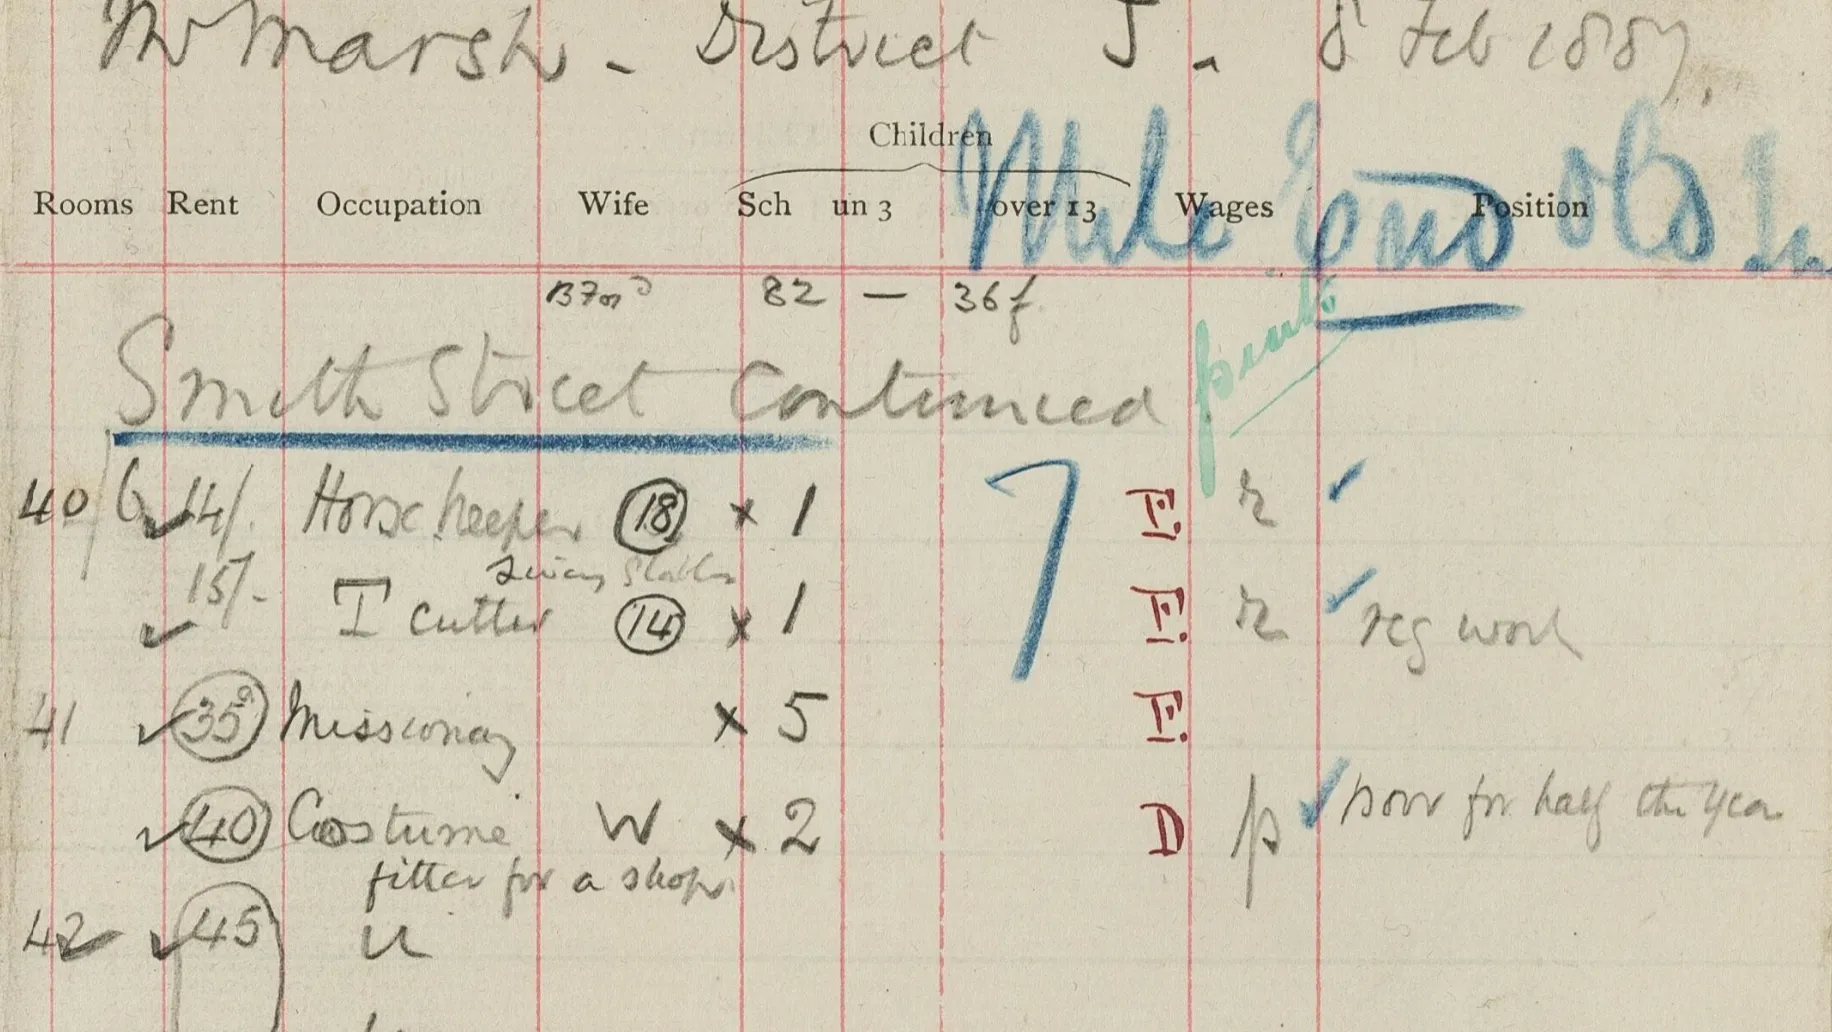 Mr Marsh - District 5 - 8 Feb 1887.
Children
Rooms Rent Occupation Wife Sch un 3 over 13 Wages Position
Mile End O
82 — 36f
Smith Street Continued
40/6 14/. Horse keeper 18 x 1 7 E. r
15/- Stables
T cutter 14 x 1 E. r reg work
41 35 Missionary x 5 E.
40 Costume W x 2 D p poor for half the year
fitter for a shop
42 45 u